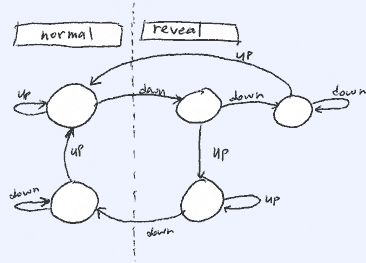 normal
reveal
up
up
down
down
down
up
up
down
up
down